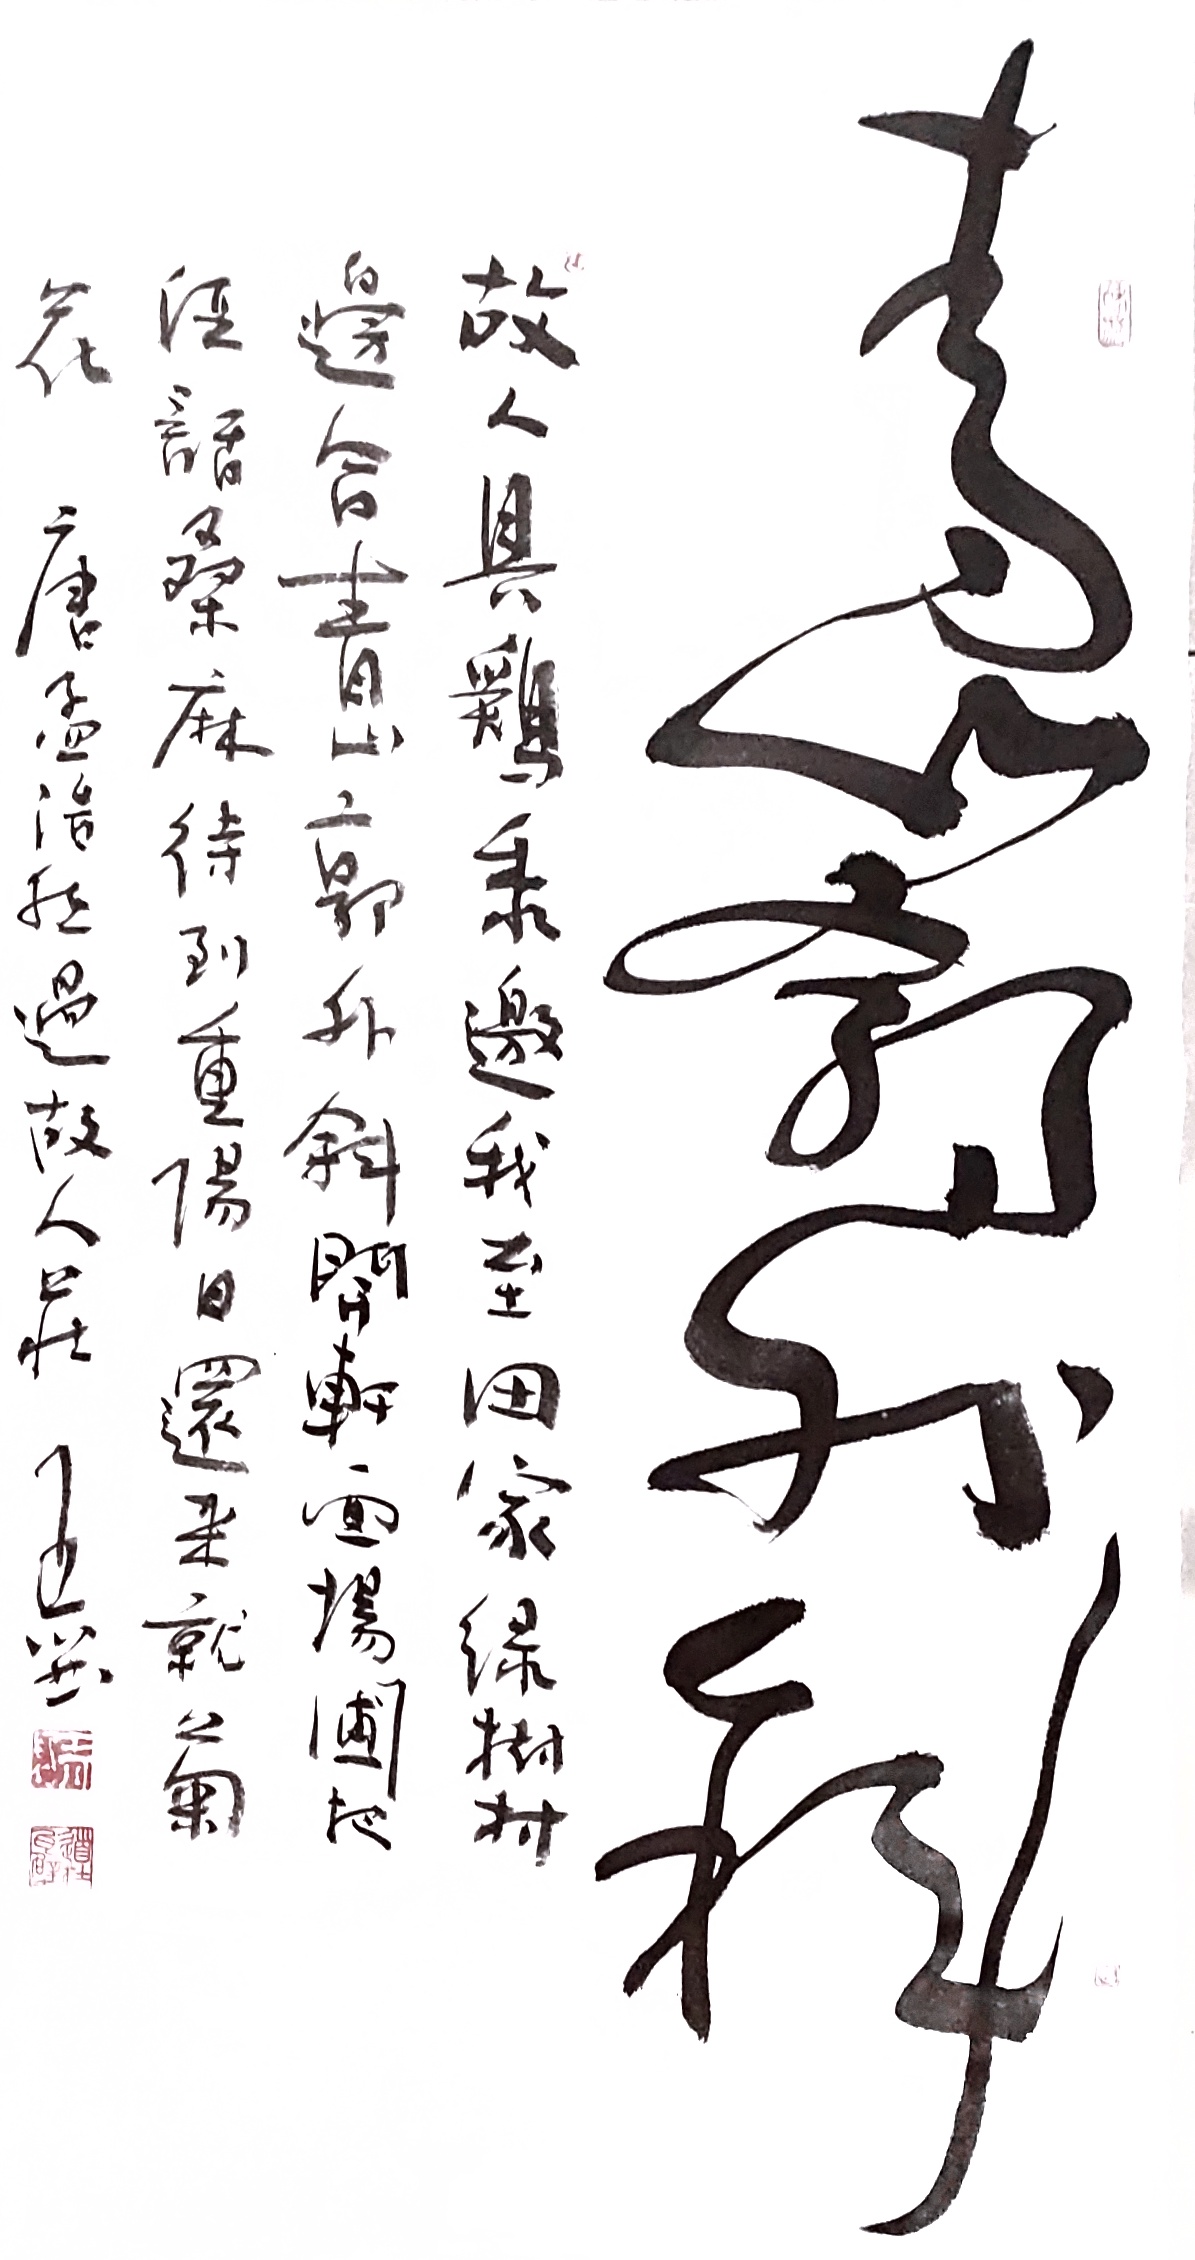 青山郭外斜
故人具鷄黍邀我至田家緑樹村
邊合青山郭外斜開軒面場圃把
酒話桑麻待到重陽日還來就菊
花 唐孟浩然過故人莊